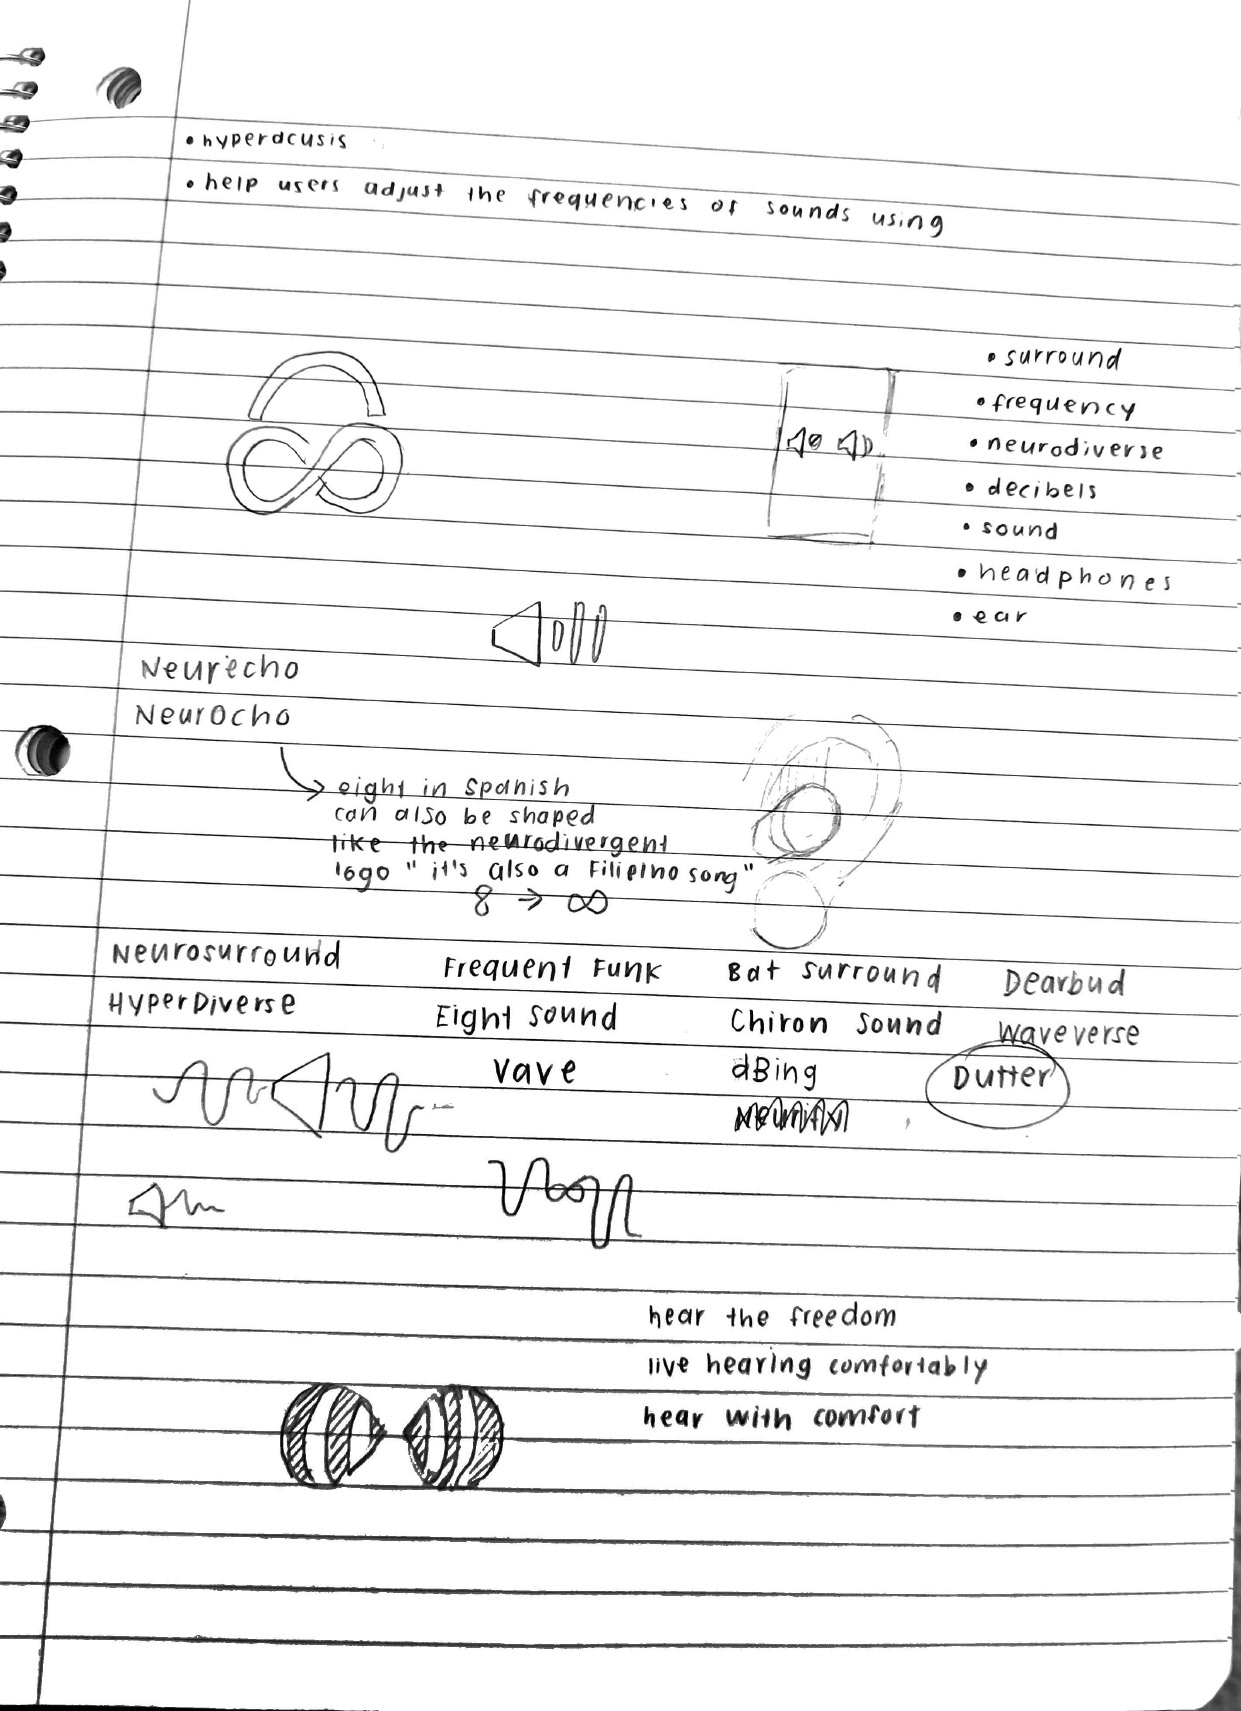 • hyperacusis
• help users adjust the frequencies of sounds using
• surround
• frequency
• neurodiverse
• decibels
• sound
• headphones
• ear
Neurecho
Neurocho
eight in Spanish
can also be shaped
like the neurodivergent
logo "it's also a Filipino song"
8 → ∞
Neurosurround Frequent Funk Bat surround Dearbud
HyperDiverse Eight Sound Chiron Sound Waveverse
vave dBing Dutter
hear the freedom
live hearing comfortably
hear with comfort